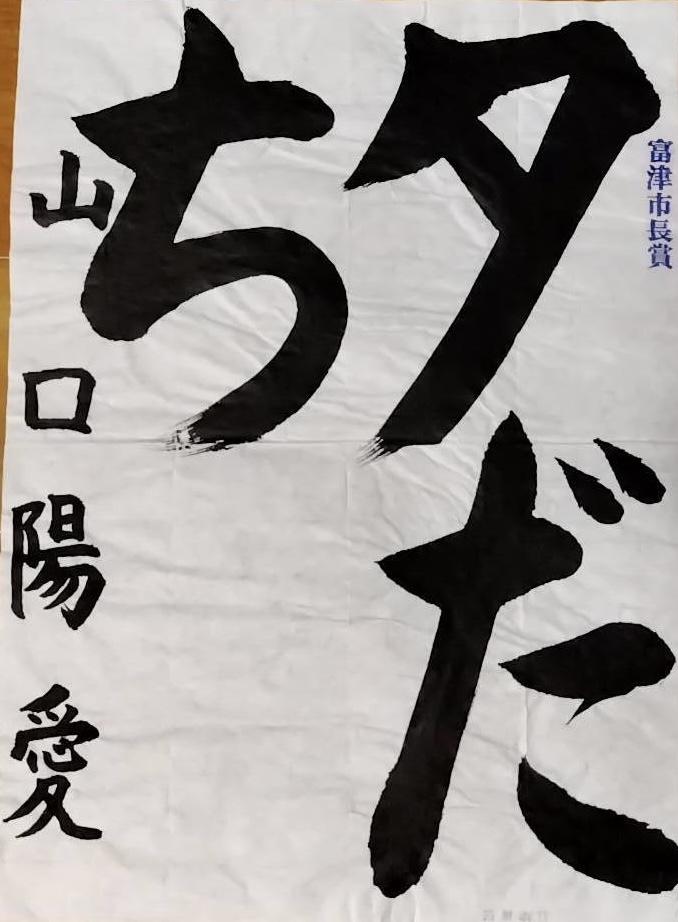 富津市長賞
夕だ
ち
山口陽愛